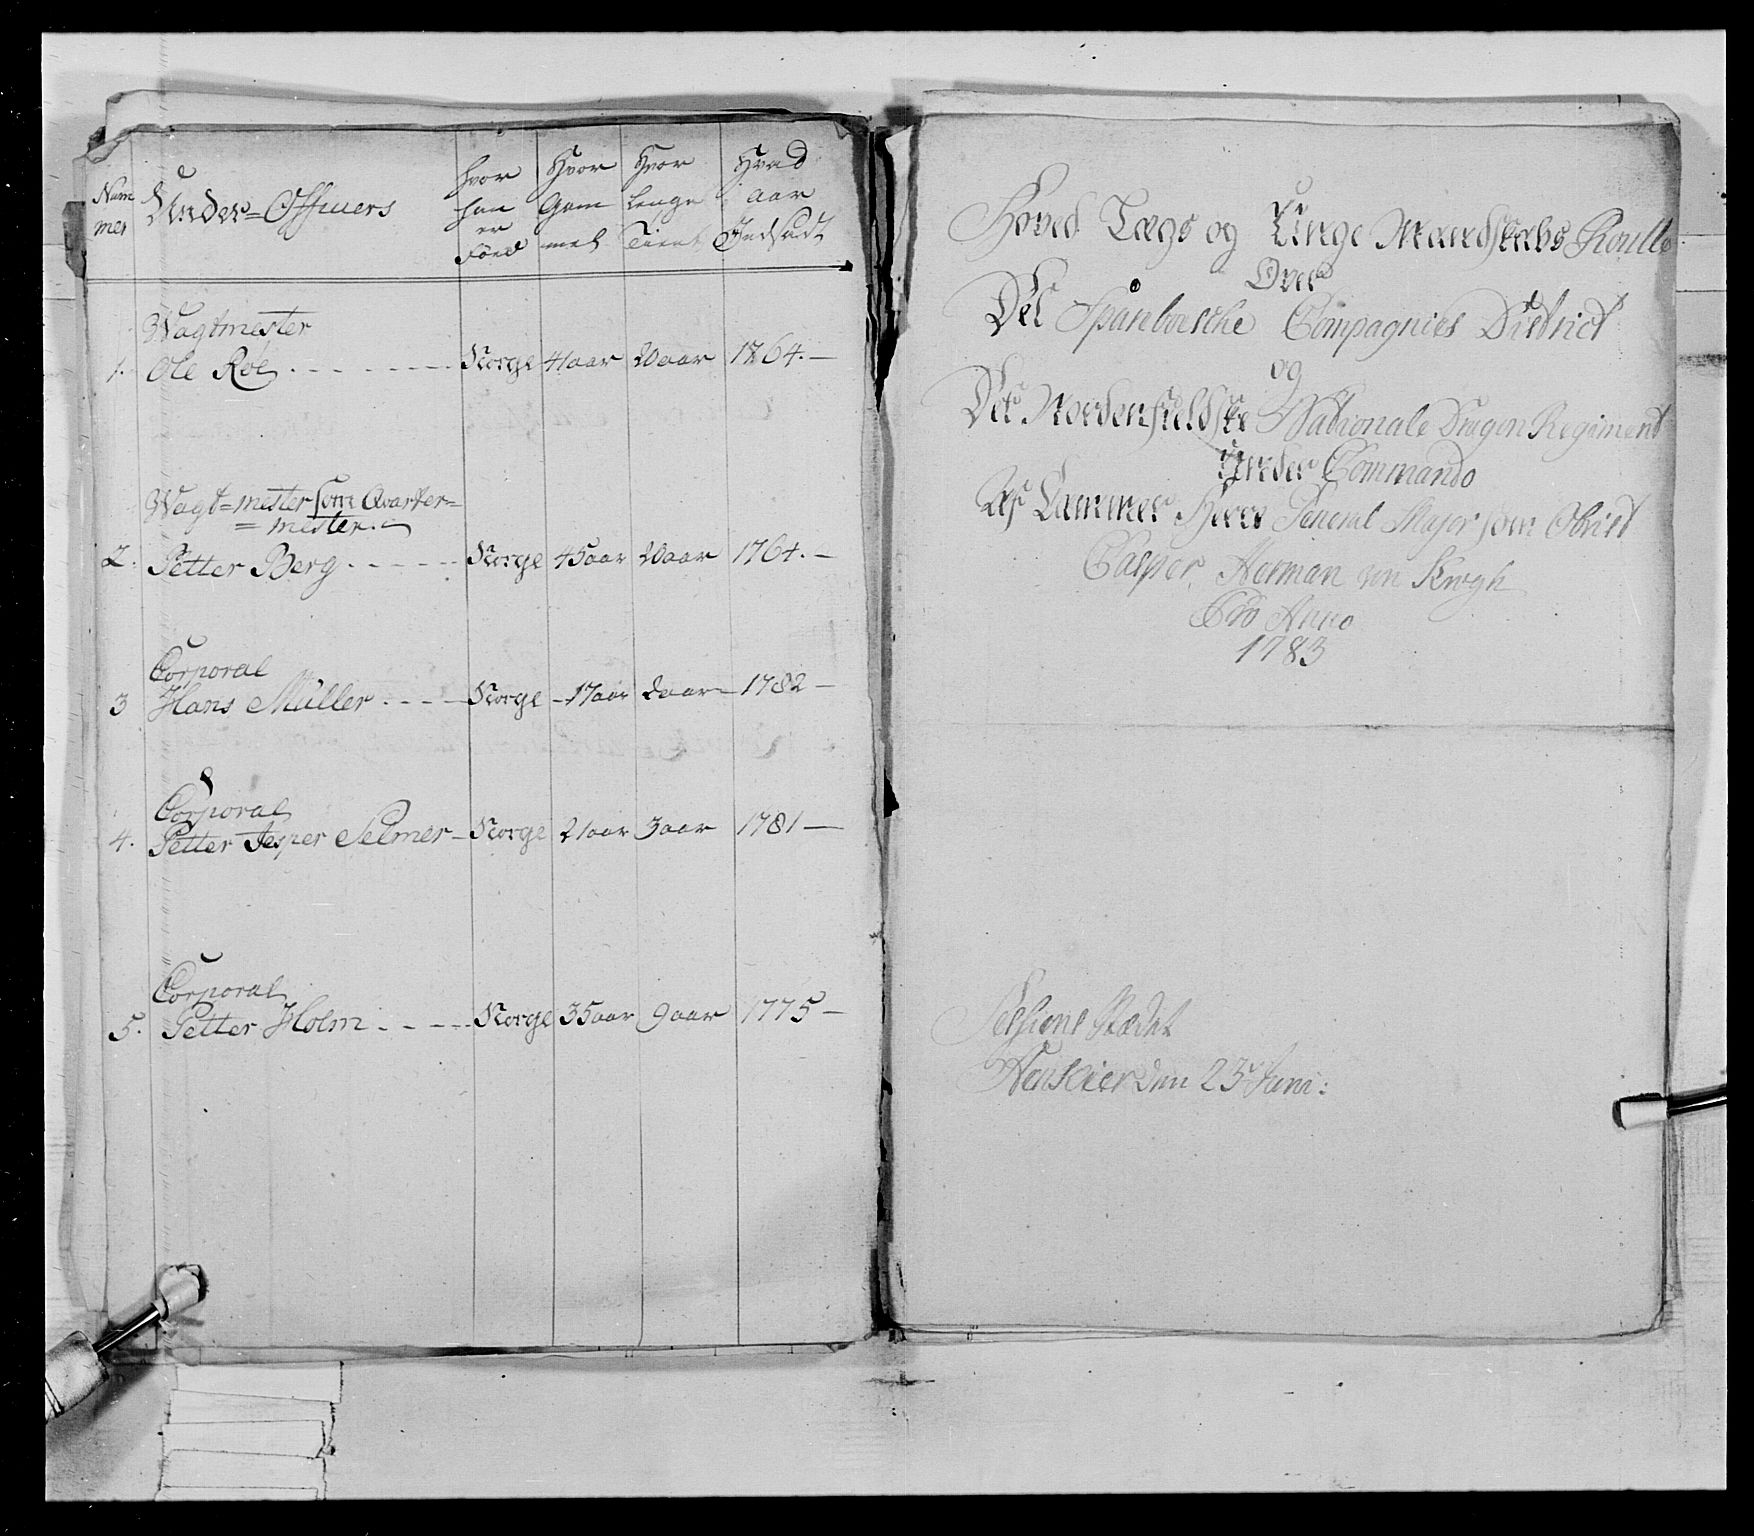 Num
mer
Under=Officiers
hvor
han
er
Föed
Hvor
Gam
mel
Hvor
lenge
Tient
Hvad
aar
Indsadt
Wagtmester
1. Ole Roe . - - - - - - Norge 41 aar 20 aar 1764. —
Wagt=mester som Qvarter=
= mester. -
2. Petter Berg . - - - - - Norge 45 aar 20 aar 1764. —
Corporal
3 Hans Müller . - - - Norge - 17 aar 2 aar - 1782 —
Corporal
4. Petter Jesper Selmer - Norge 21 aar 3 aar 1781 —
Corporal
5. Petter Holm . - - - - Norge 35 aar 9 aar 1775 —
Hoved Lægs og Unge Mandskabs Roulle
Over
Det Spanboeske Compagnies District
og
Det Nordenfieldske Nationale Dragon Regiment
Under Commando
Af Kammer Herre General Major som Obrist
Casper Herman von Krogh
Pro Anno
1783
Sessions Stædet
den 23 Juni: